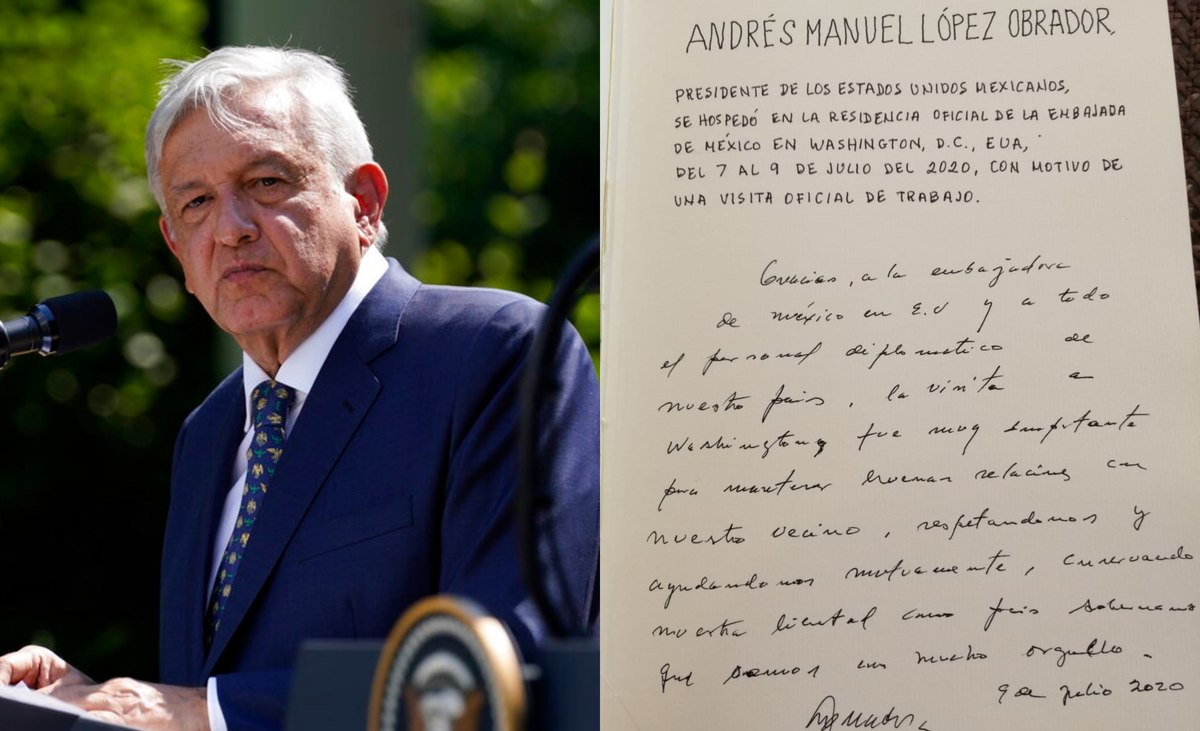 ANDRÉS MANUEL LÓPEZ OBRADOR,
PRESIDENTE DE LOS ESTADOS UNIDOS MEXICANOS,
SE HOSPEDÓ EN LA RESIDENCIA OFICIAL DE LA EMBAJADA
DE MÉXICO EN WASHINGTON, D.C., EUA,
DEL 7 AL 9 DE JULIO DEL 2020, CON MOTIVO DE
UNA VISITA OFICIAL DE TRABAJO.
Gracias, a la embajadora
de méxico en E.U y a todo
el personal diplomático de
nuestro país, la visita a
Washington fue muy importante
para mantener buenas relaciones con
nuestro vecino, respetandonos y
ayudandonos mutuamente, conservando
nuestra libertad como país soberano
que somos con mucho orgullo.
9 de julio 2020